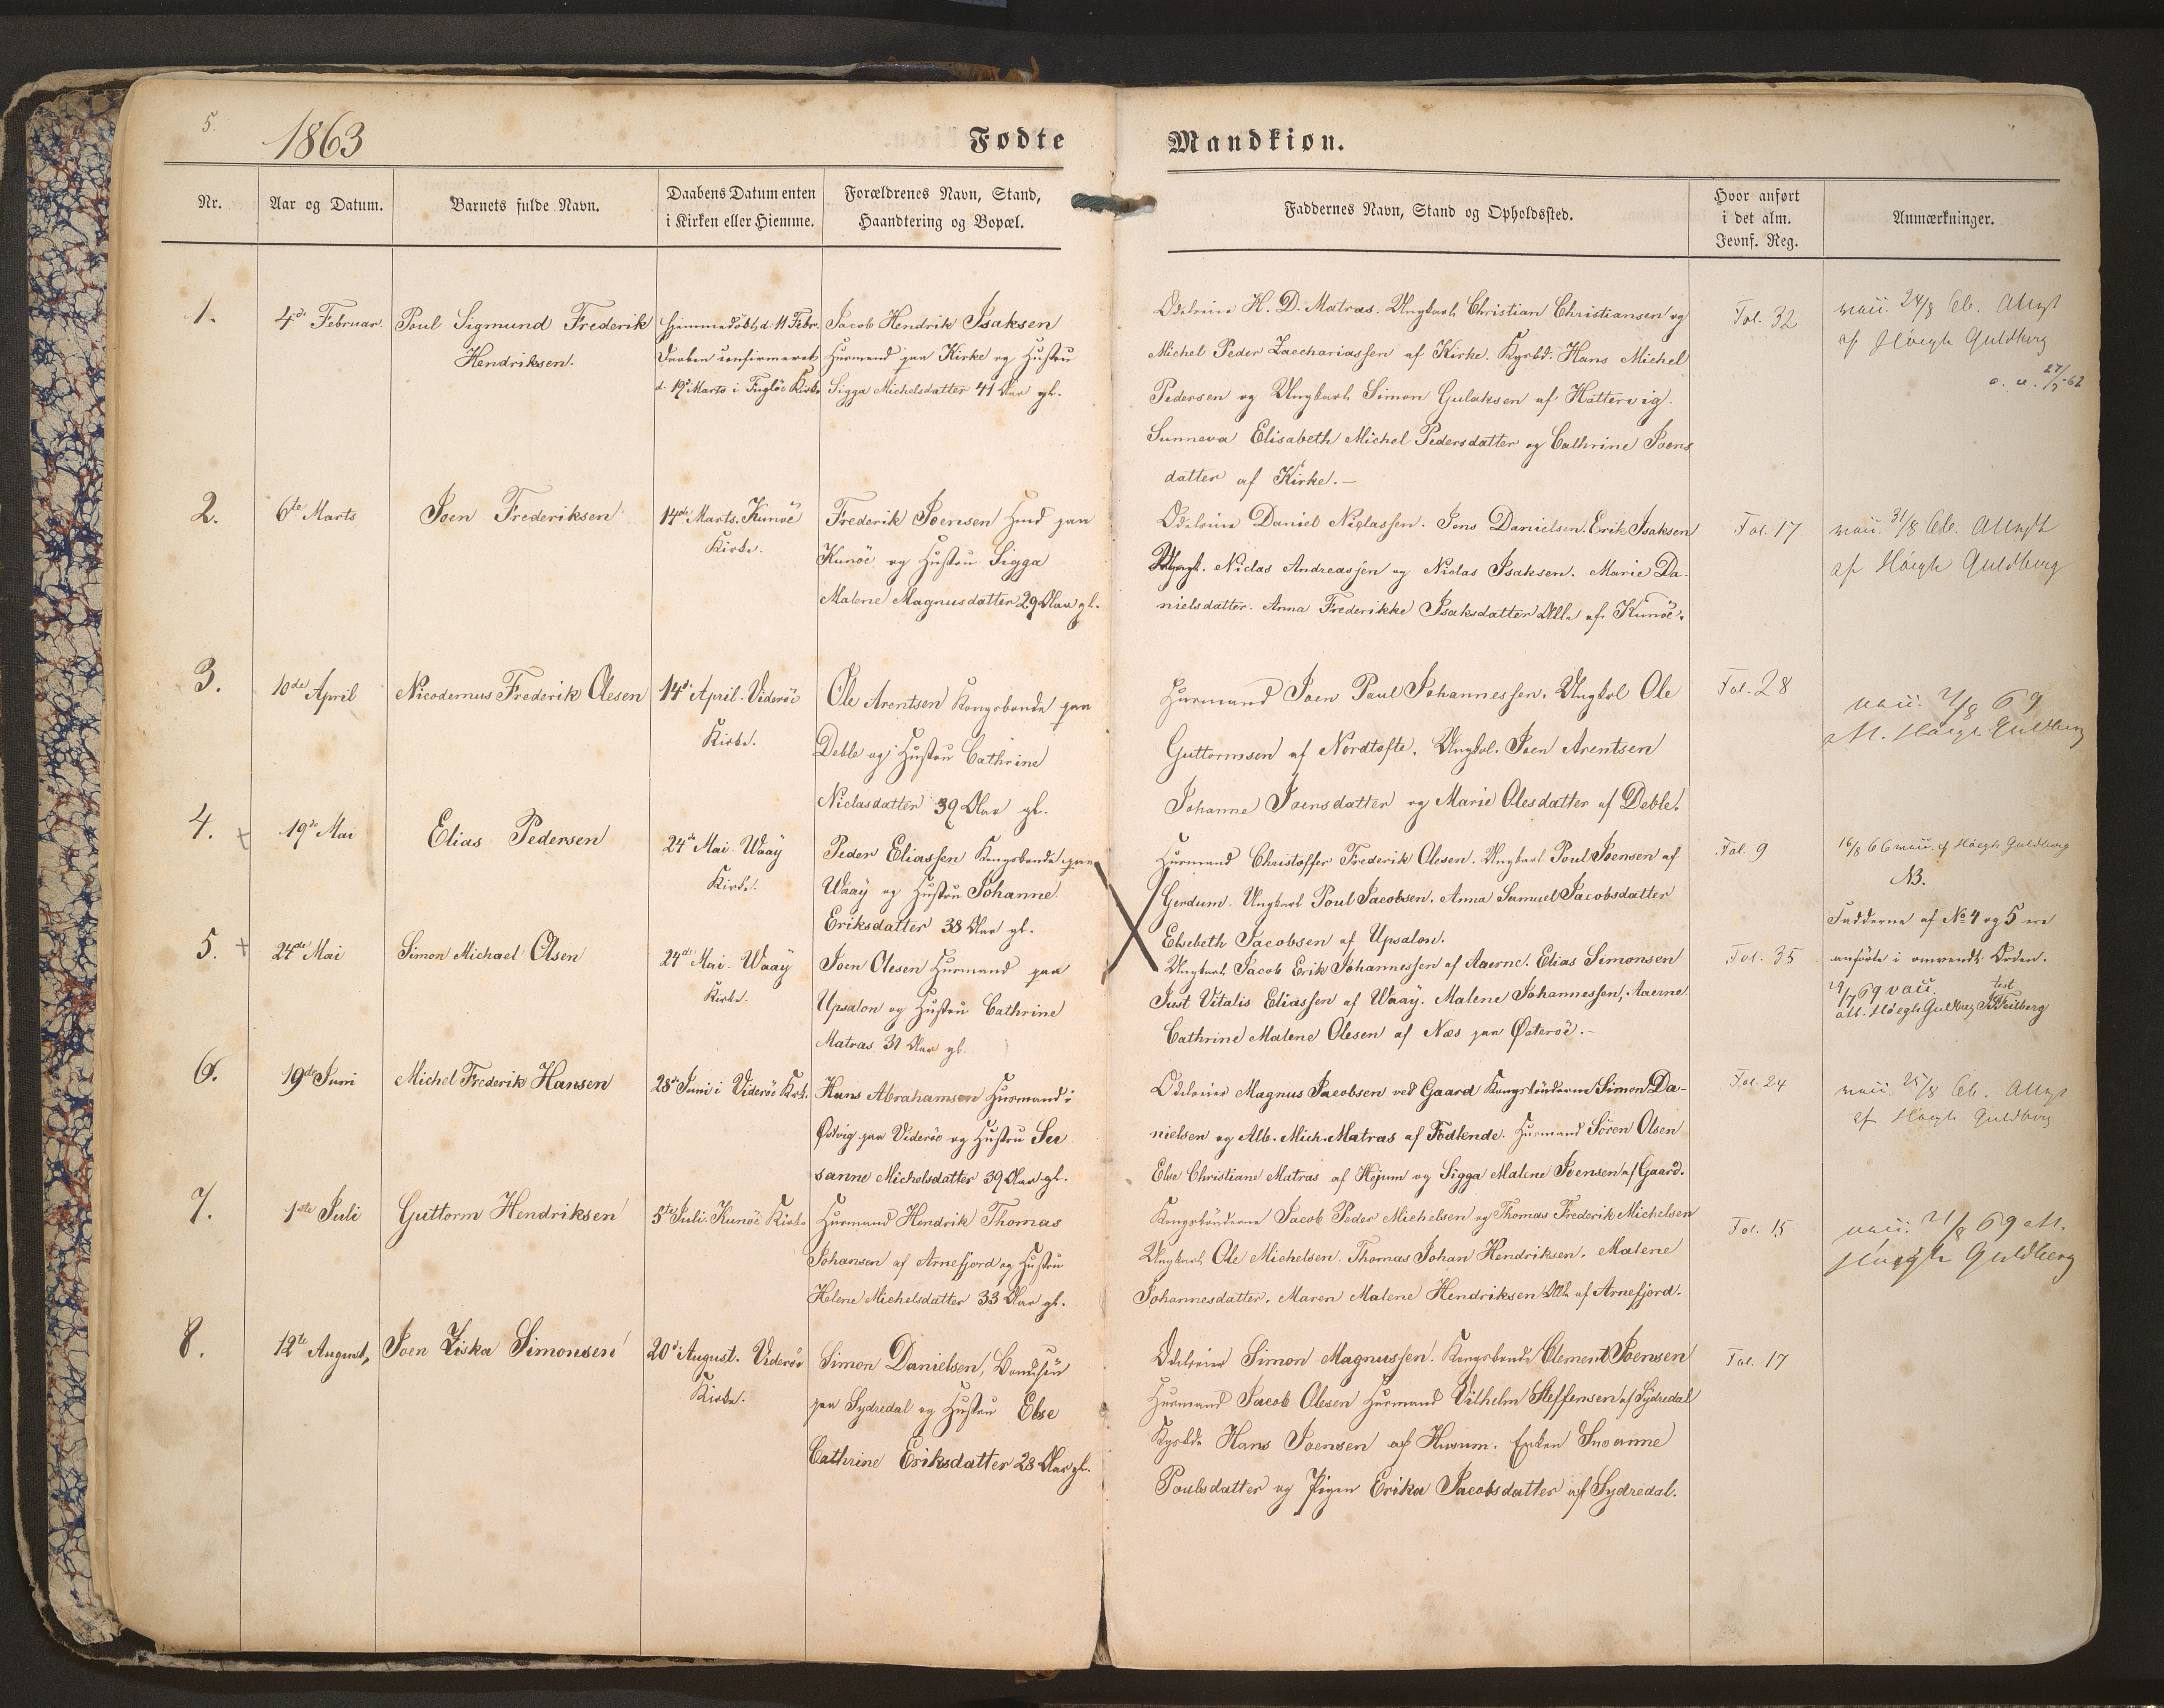 5.
1863
Fødte
Mandkiøn.
Nr.
Aar og Datum.
Barnets fulde Navn.
Daabens Datum enten
i Kirken eller Hiemme.
Forældrenes Navn, Stand,
Haandtering og Bopæl.
Faddernes Navn, Stand og Opholdssted.
Hvor anført
i det alm.
Jevnf. Reg.
Anmærkninger.
1.
4de Februar
Poul Sigmund Frederik
Hendriksen.
Hjemmedøbt d. 11 Febr.
Daaben confirmeret
d. 19 Marts i Fuglöe Kirke
Jacob Hendrik Isaksen
Huusmand paa Kirke og Hustru
Sigga Michelsdatter 41 Aar gl.
Odelsbonde H. D. Matras. Ungkarl Christian Christiansen og
Michel Peder Zacchariassen af Kirke. Kgsbd. Hans Michel
Pedersen og Ungkarl Simon Gulaksen af Hattervig.
Sunneva Elisabeth Michel Pedersdatter og Cathrine Joens
datter af Kirke.-
Fol. 32
vacc. 24/8 66. Attest
af Höegh Guldberg
2.
6te Marts
Joen Frederiksen
14de Marts. Kunöe
Kirke.
Frederik Joensen Hmd paa
Kunöe og Hustru Sigga
Malene Magnusdatter 29 Aar gl.
Daniel Niclassen. Jens Danielsen. Erik Isaksen
Niclas Andreassen og Niclas Isaksen. Marie Da-
nielsdatter. Anna Frederikke Isaksdatter Alle af Kunöe.
Fol. 17
vacc. 31/8 66. Attest
af Höegh Guldberg
3.
10de April
Nicodemus Frederik Olesen
14de April. Videröe
Kirke.
Ole Arentsen Kongsbonde paa
Deble og Hustru Cathrine
Niclasdatter 39 Aar gl.
Huusmand Joen Paul Johannessen. Ungkl Ole
Guttormsen af Nordtofte. Ungkl. Joen Arentsen
Johanne Joensdatter og Marie Olesdatter af Deble.
Fol. 28
vacc. 2/8 69
att. Höegh Guldberg
4.
19de Mai
Elias Pedersen
24de Mai. Waaÿ
Kirke.
Peder Eliassen Kongsbonde paa
Waaÿ og Hustru Johanne
Eriksdatter 38 Aar gl.
Huusmand Christoffer Frederik Olesen. Ungkarl Poul Joensen af
Gerdum. Ungkarl Poul Jacobsen. Anna Samuel Jacobsdatter
Elsebeth Jacobsen af Upsalon.
Fol. 9
16/8 66 vacc. af Höegh Guldberg
NB.
Fadderne af No 4 og 5 ere
anförte i omvendt Orden.
5.
24de Mai
Simon Michael Olsen
24de Mai. Waaÿ
Kirke.
Joen Olesen Huusmand paa
Upsalon og Hustru Cathrine
Matras 31 Aar gl.
Ungkarl Jacob Erik Johannessen af Aaerne. Elias Simonsen
Just Vitalis Eliassen af Waaÿ. Malene Johannessen, Aaerne
Cathrine Malene Olesen af Næs paa Østeröe.-
Fol. 35
29/7 69 vacc. test
att. Höegh Guldberg
6.
19de Juni
Michel Frederik Hansen
28de Juni i Videröe Kirke.
Hans Abrahamsen Huusmand i
Østvig paa Videröe og Hustru Su
sanne Michelsdatter 39 Aar gl.
Magnus Jacobsen ved Gaard Kongsbönderne Simon Da-
nielsen og Alb. Mich. Matras af Fodlende. Huusmand Sören Olsen
Else Christiane Matras af Hejum og Sigga Malene Joensen af Gaard.
Fol. 24
vacc. 25/8 66. Attest
af Höegh Guldberg
7.
1ste Juli
Guttorm Hendriksen
5te Juli. Kunöe Kirke
Huusmand Hendrik Thomas
Johansen af Arnefjord og Hustru
Helene Michelsdatter 33 Aar gl.
Kongsbönderne Jacob Peder Michelsen og Thomas Frederik Michelsen
Ungkarl Ole Michelsen. Thomas Johan Hendriksen. Malene
Johannesdatter. Maren Malene Hendriksen Alle af Arnefjord.
Fol. 15
vacc. 21/8 69 att.
Höegh Guldberg
8.
12te August,
Joen Ziska Simonsen
20de August. Videröe
Kirke.
Simon Danielsen,
paa Sydredal og Hustru Else
Cathrine Eriksdatter 28 Aar gl.
Simon Magnussen. Kongsbonde Clement Joensen
Huusmand Jacob Olesen Huusmand Vilhelm Steffensen af Sydredal
Kgsbde Hans Joensen af Husum. Enken Susanne
Poulsdatter og Pigen Erika Jacobsdatter af Sydredal.
Fol. 17